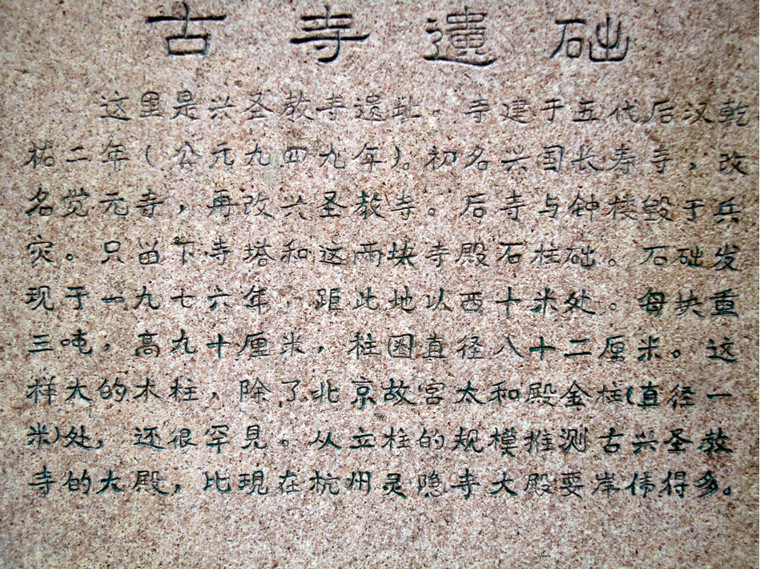 古寺遗础
这里是兴圣教寺遗址。寺建于五代后汉乾
祐二年(公元九四九年)。初名兴国长寿寺,改
名觉元寺,再改兴圣教寺。后寺与钟楼毁于兵
灾。只留下寺塔和这两块寺殿石柱础。石础发
现于一九七六年,距此地以西十米处。每块重
三吨,高九十厘米,柱圆直径八十二厘米。这
样大的木柱,除了北京故宫太和殿金柱(直径一
米)处,还很罕见。从立柱的规模推测古兴圣教
寺的大殿,比现在杭州灵隐寺大殿要岸伟得多。